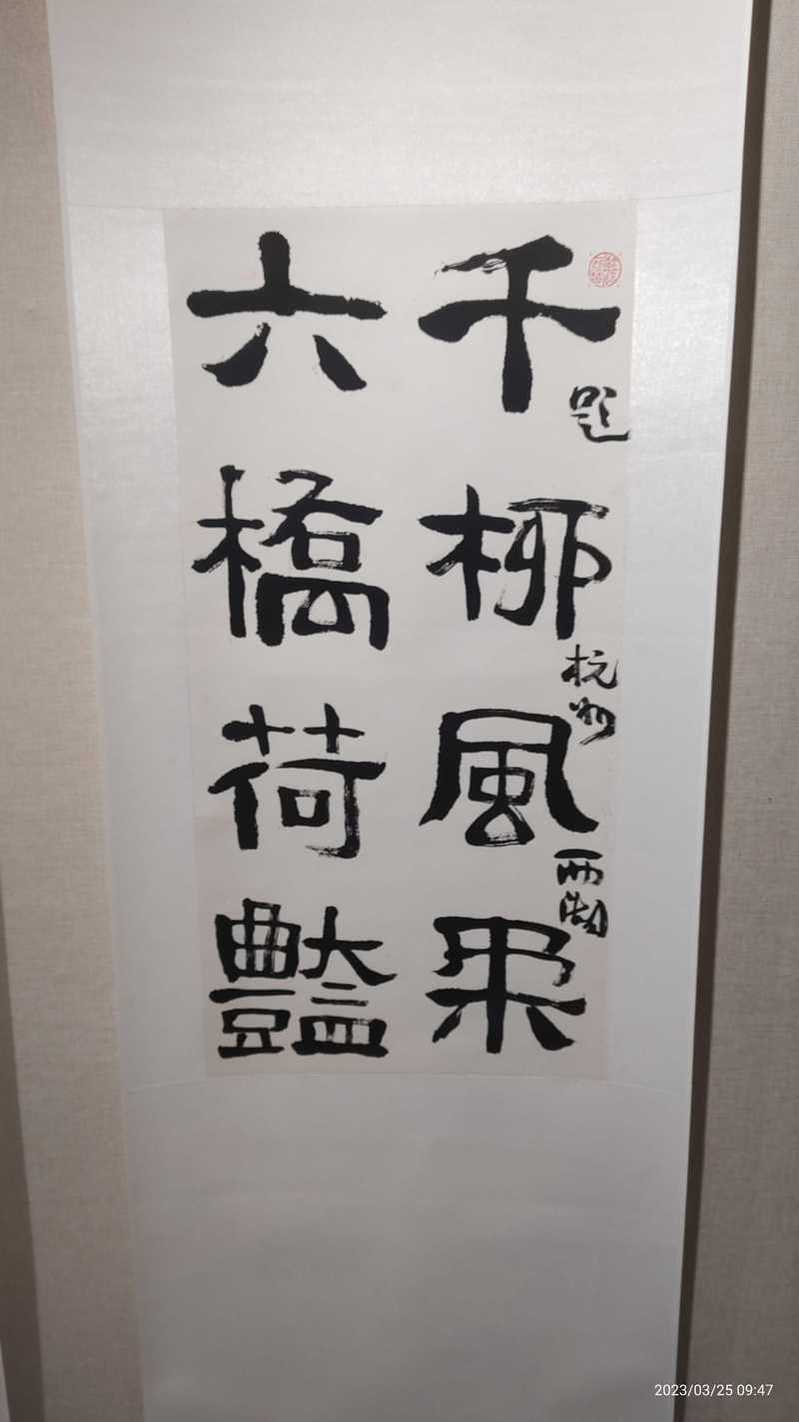 題杭州西湖
千柳風柔
六橋荷豔
2023/03/25 09:47